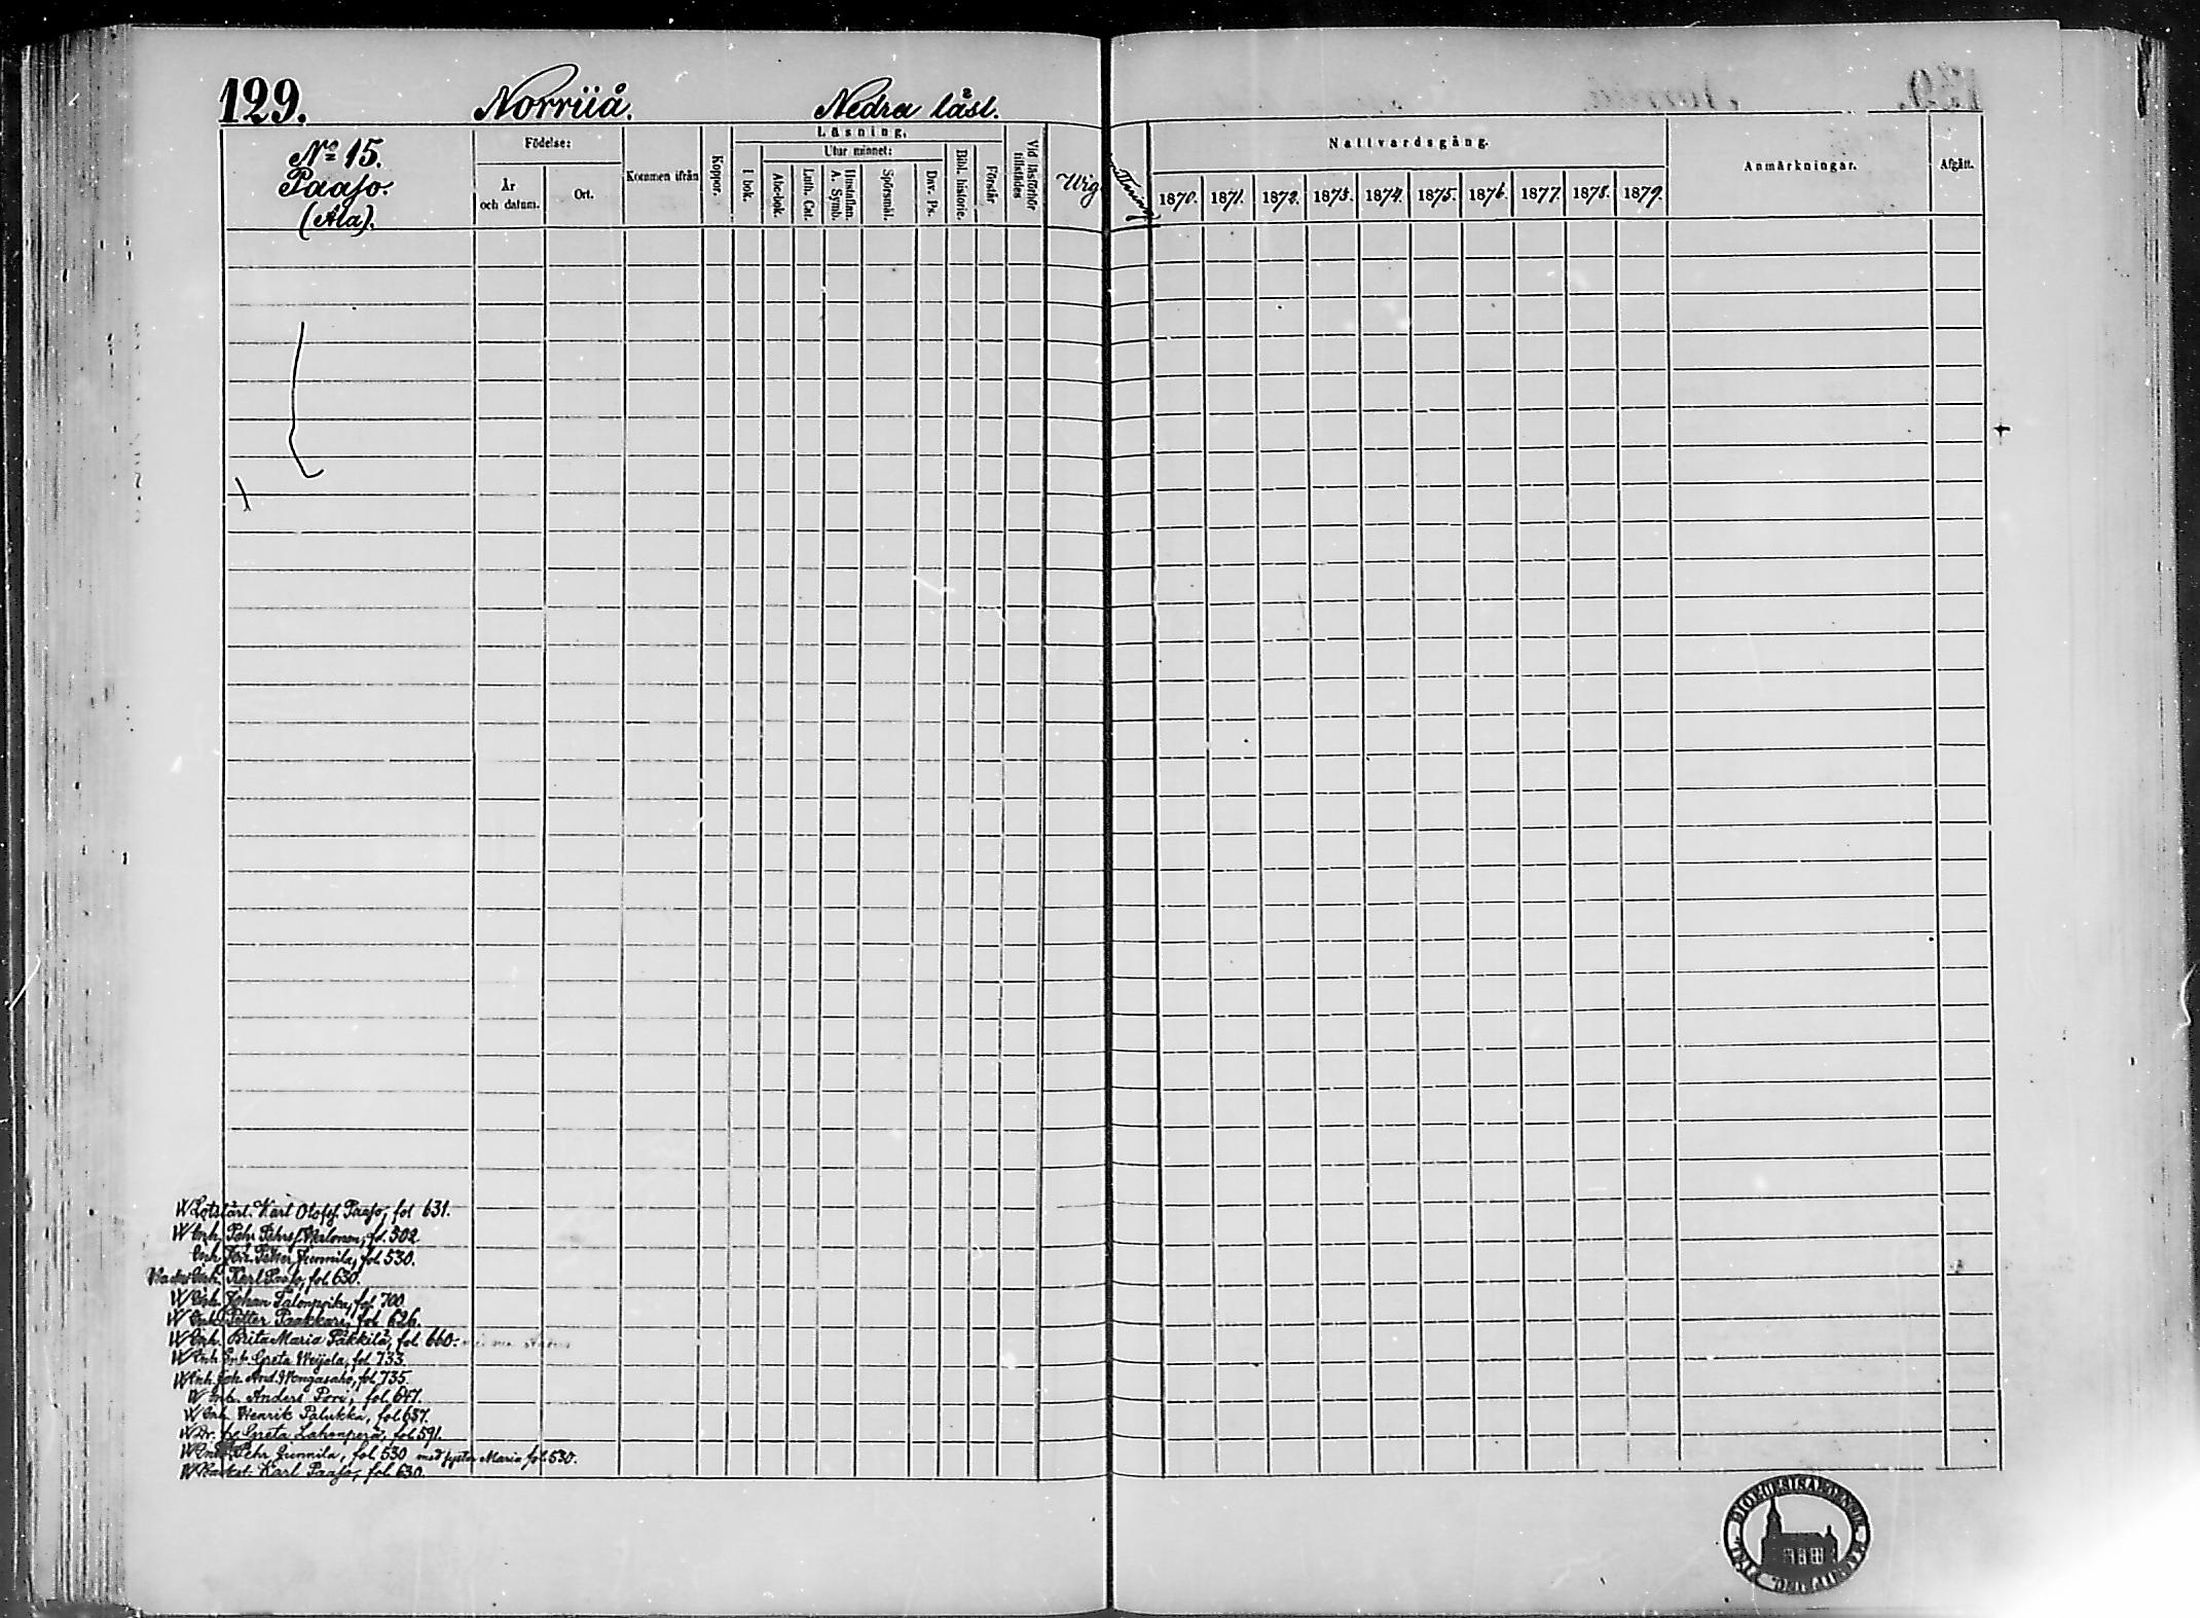 129. Norriiå. Nedra läsl.
No 15.
Paaso.
(Ala).
Födelse:
År och datum.
Ort.
Kommen ifrån
Koppor.
Läsning.
I bok.
Utur minnet:
Abc-bok.
Luth. Cat.
Hustaflan. A. Symb.
Spörsmål.
Dav. Ps.
Bibl. historie.
Förstår
Vid läsförhör tillstädes
Nattvardsgång.
1870. 1871. 1872. 1873. 1874. 1875. 1876. 1877. 1878. 1879.
Anmärkningar.
Afgått.
Karl Olofss. Paaso, fol 631.
W Inh. Pehr Pehrs. fol. 502
Inh. Petter Junnila, fol. 530.
Inh. Karl Paaso, fol 630.
W Inh. Johan Talonpoika, fol. 700
W Inh. Petter Paakkari, fol 626.
W Inh. Brita Maria Päkkilä, fol 660.
W Inh. Greta Weijola, fol 733.
W Inh. Joh. And. fol 735.
W Inh. Anders Pori, fol 647.
W Inh. Henrik Palukka, fol 657.
Greta Lahenperä, fol 591.
Pehr Junnila, fol. 530 med syster Maria fol. 530.
W Backst. Karl Paaso, fol. 630.